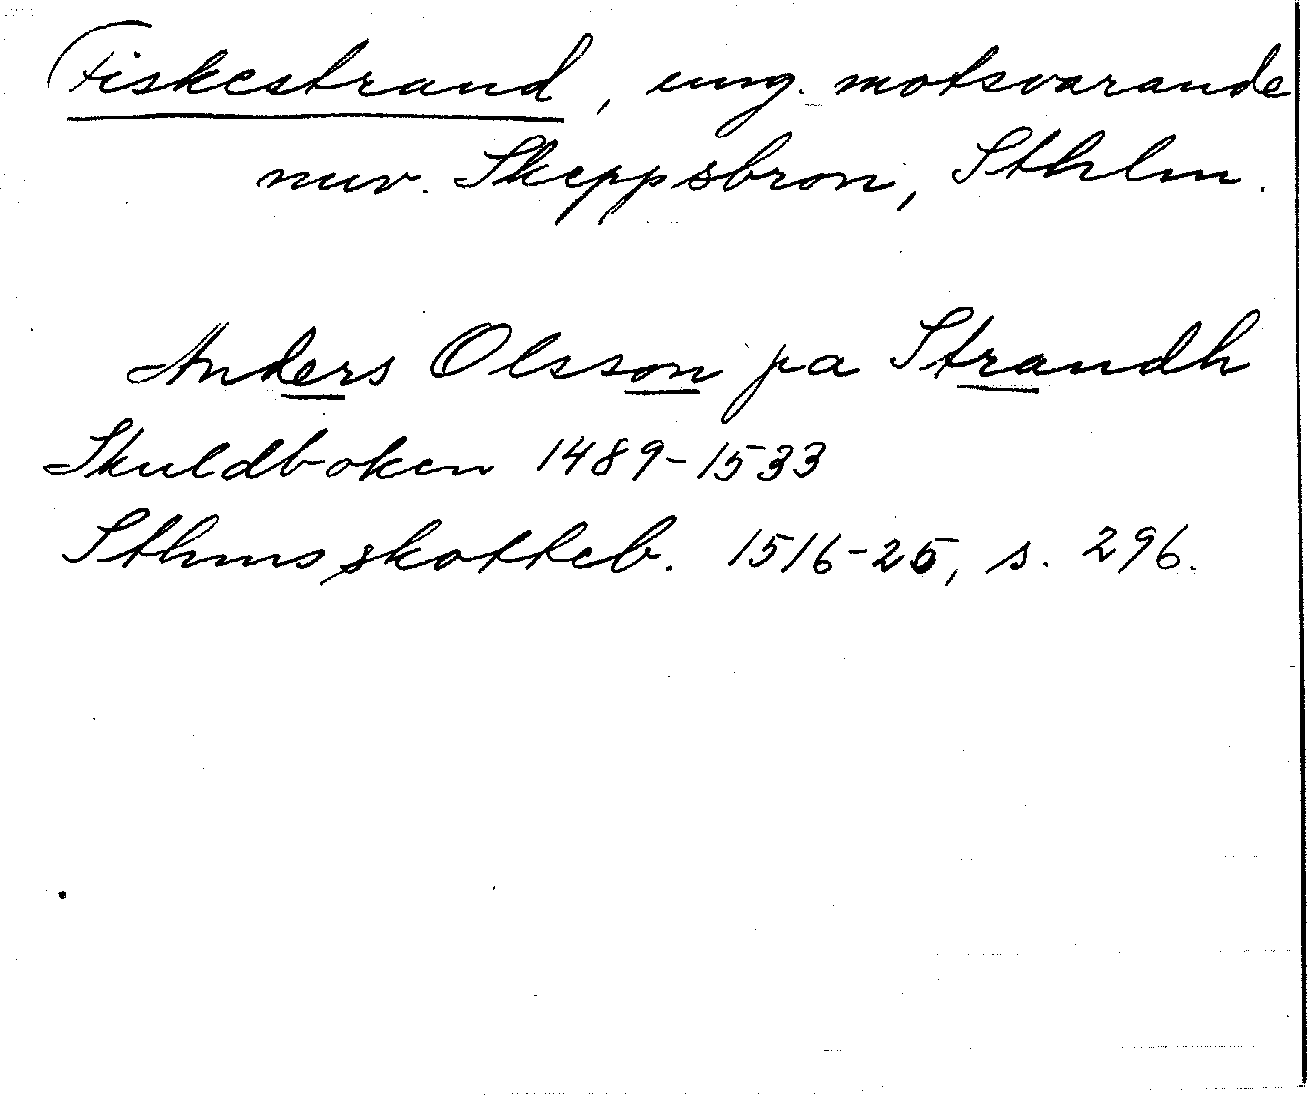 Fiskestrand, ung. motsvarande
nuv. Skeppsbron, Sthlm.
Anders Olsson pa Strandh
Skuldboken 1489-1533
Sthms skotteb. 1516-25, s. 296.